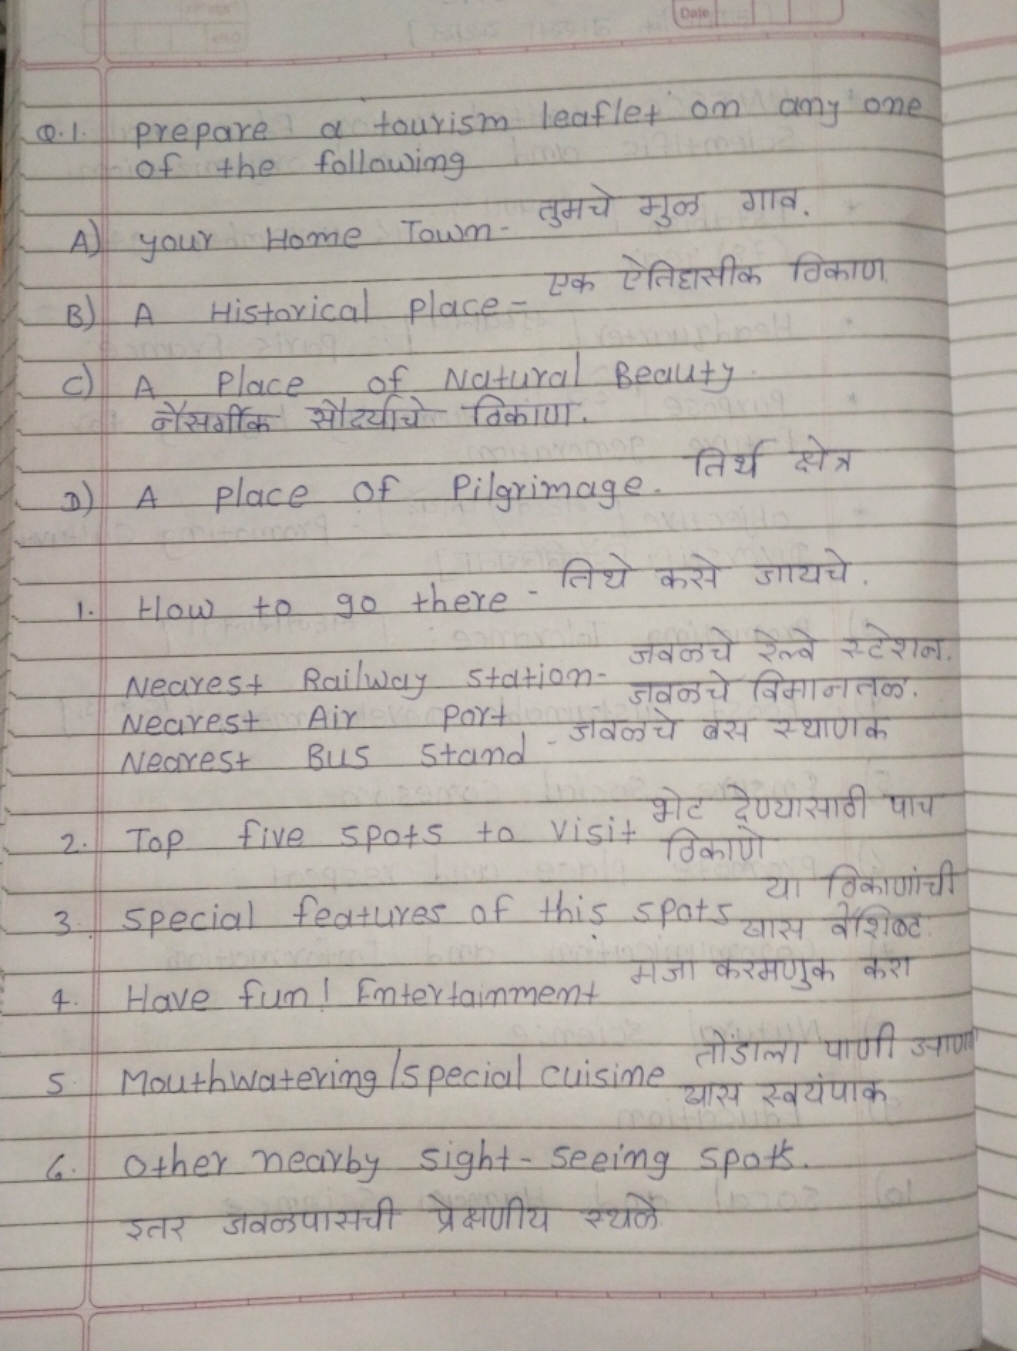 Date
Q.1. prepare a tourism leaflet on any one
of the following
तुमचे मुळ गाव.
A) your Home Town-
एक ऐतिहासीक ठिकाण.
B) A Historical place-
C) A Place of Natural Beauty.
नैसर्गीक सौदर्याचे ठिकाण.
D) A place of Pilgrimage. तिर्थ क्षेत्र
1. How to go there - तिथे कसे जायचे.
Nearest Railway station- जवळचे रेल्वे स्टेशन.
Nearest Air port जवळचे विमानतळ.
Nearest Bus Stand - जवळचे बस स्थाणक
2. Top five spots to visit भेट देण्यासाठी पाच
ठिकाणे
3. special features of this spots या ठिकाणांची
खास वैशिष्ट.
4. Have fun! Entertainment मजा करमणुक करा
5. Mouthwatering/special cuisine तोंडाला पाणी
खास स्वयंपाक
6. other nearby sight-seeing spots.
इतर जवळपासची प्रेक्षणीय स्थळे